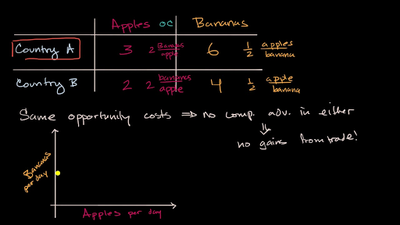 Apples OC Bananas
Country A 3 2 Bananas/apple 6 1/2 apples/banana
Country B 2 2 bananas/apple 4 1/2 apple/banana
Same opportunity costs ⇒ no comp. adv. in either
⇓
no gains from trade!
Bananas per day
Apples per day